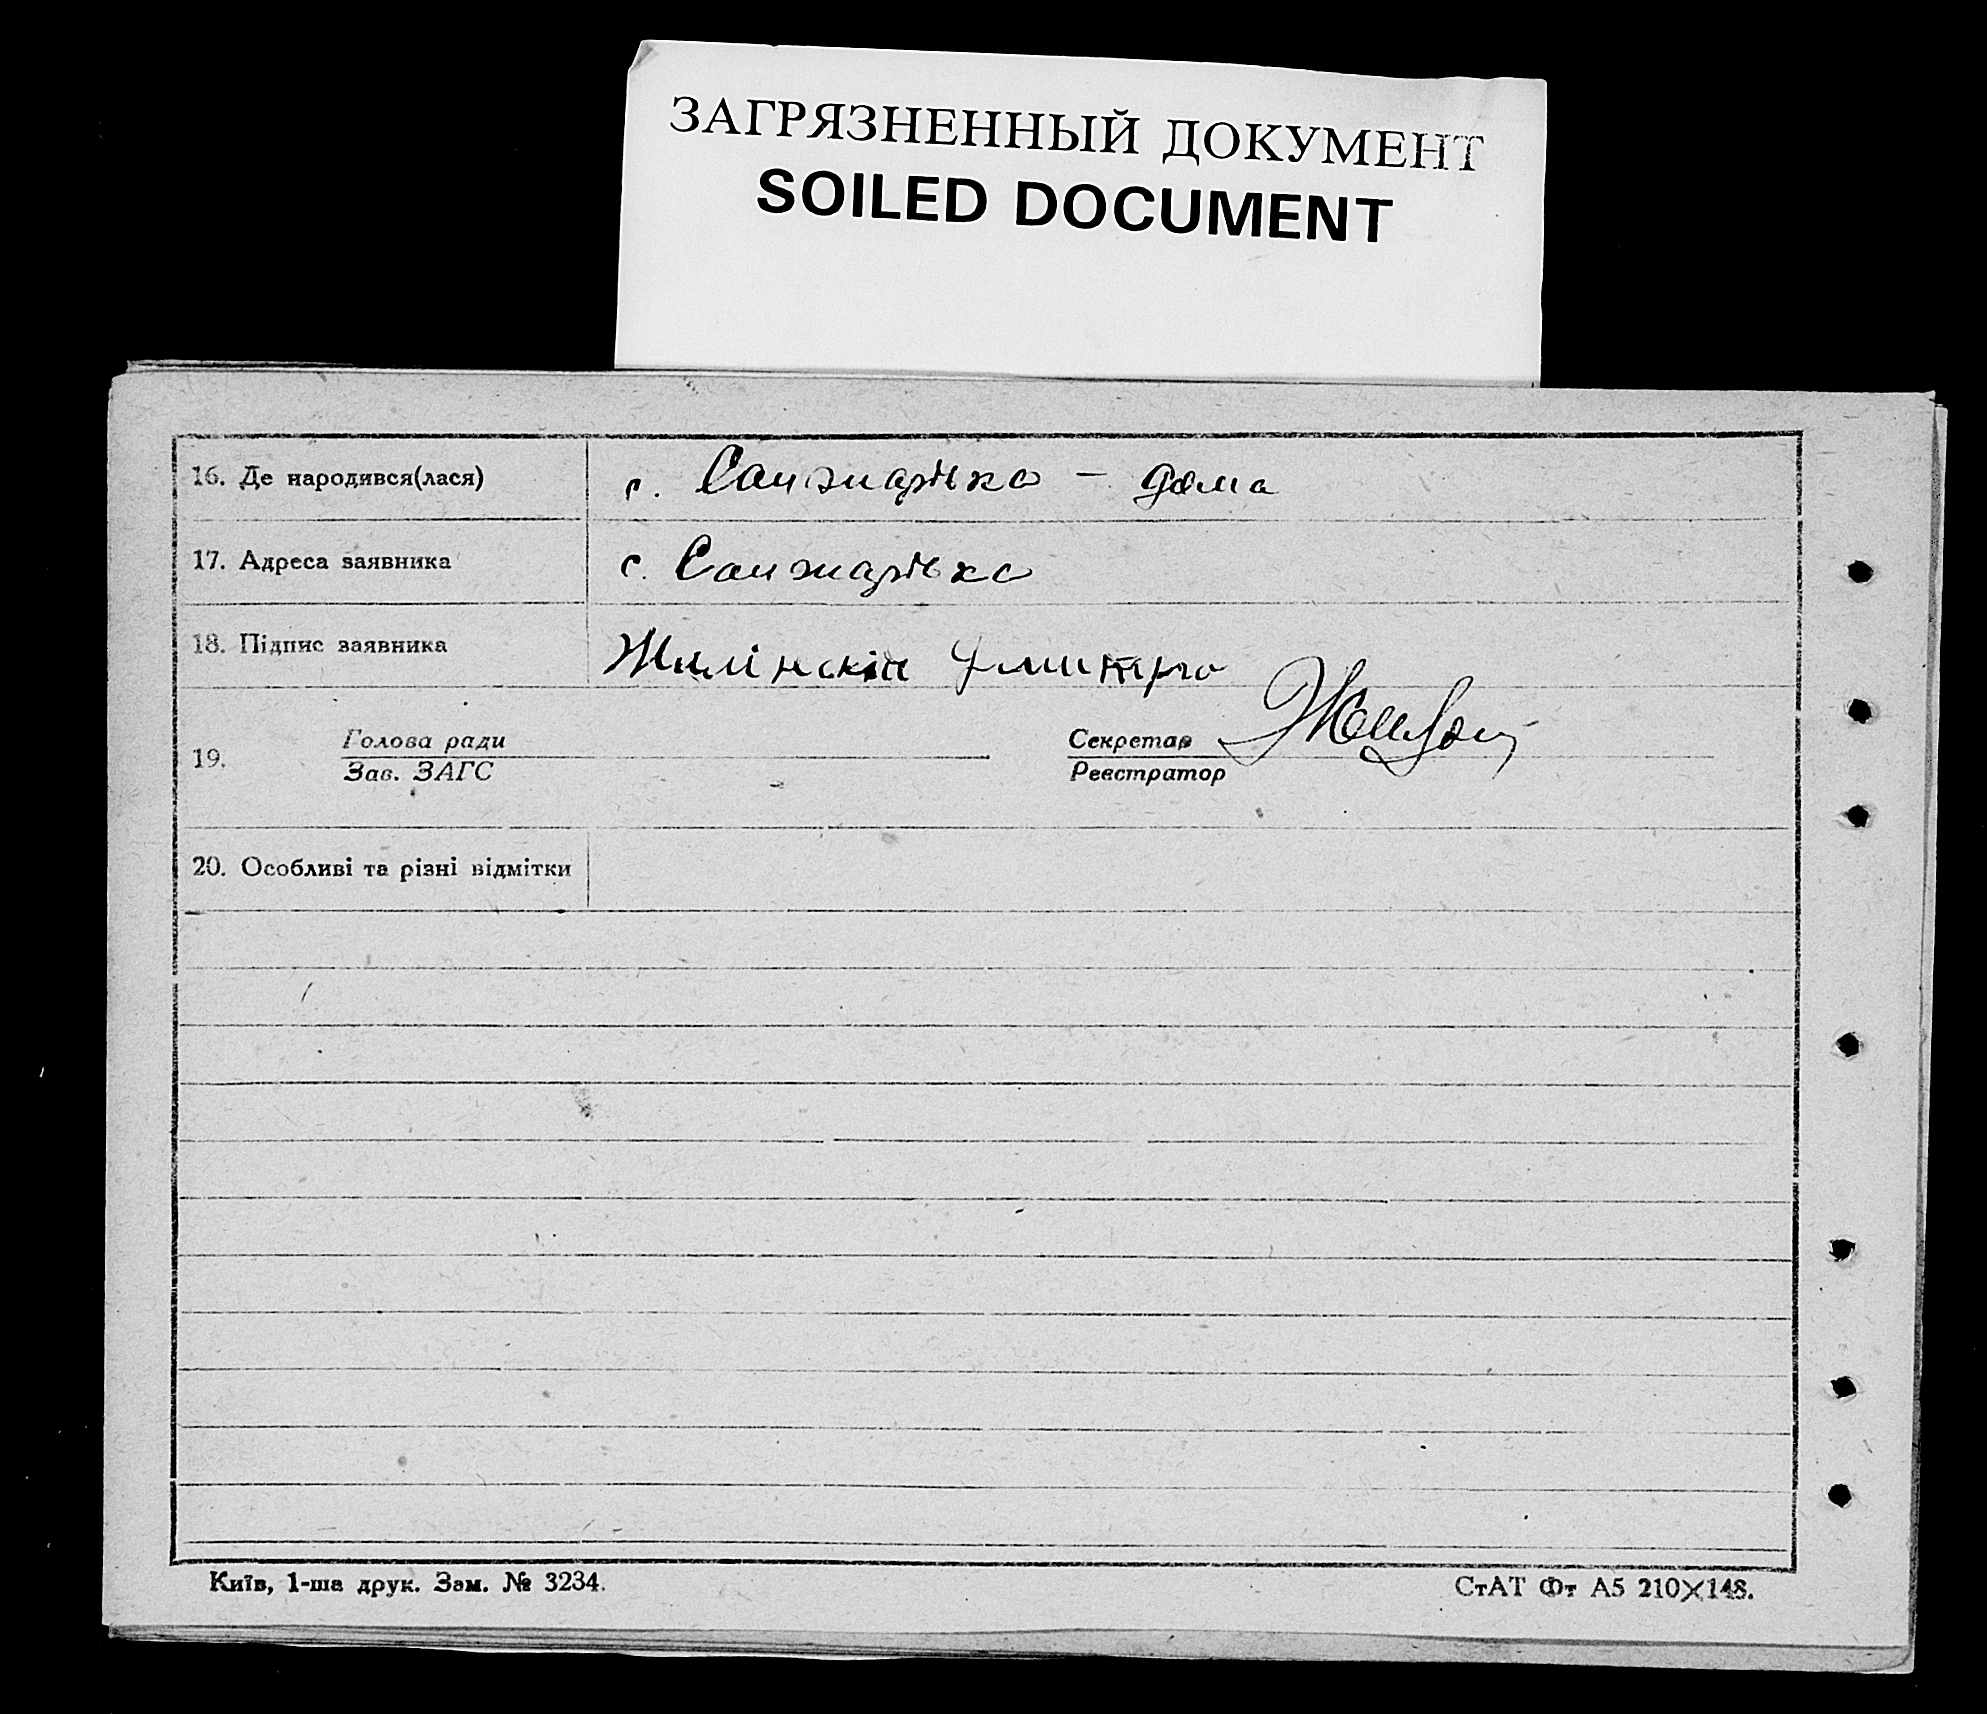 ЗАГРЯЗНЕННЫЙ ДОКУМЕНТ
SOILED DOCUMENT
16. Де народився(лася) с. Санжарівка – дома
17. Адреса заявника с. Санжарівка
18. Підпис заявника Жилінскій Дмитро
19. Голова ради Секретар
Зав. ЗАГС Реєстратор
20. Особливі та різні відмітки
Київ, 1-ша друк. Зам. № 3234. СтАТ Фт А5 210×148.